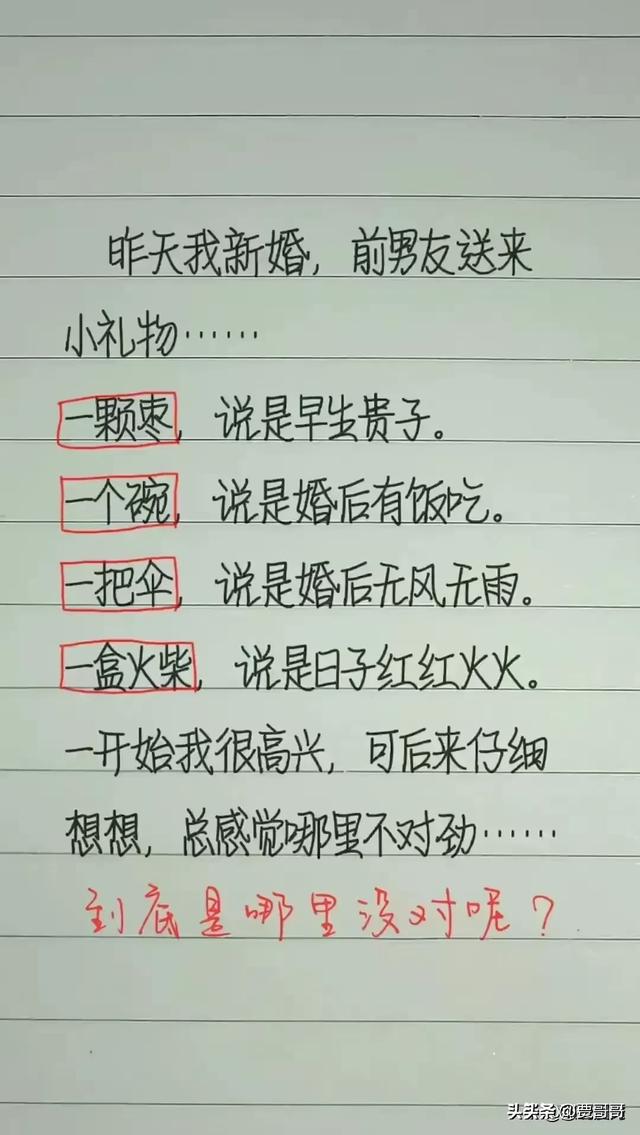 昨天我新婚，前男友送来
小礼物……
一颗枣，说是早生贵子。
一个碗，说是婚后有饭吃。
一把伞，说是婚后无风无雨。
一盒火柴，说是日子红红火火。
一开始我很高兴，可后来仔细
想想，总感觉哪里不对劲……
到底是哪里没对呢？
头条 @贾哥哥